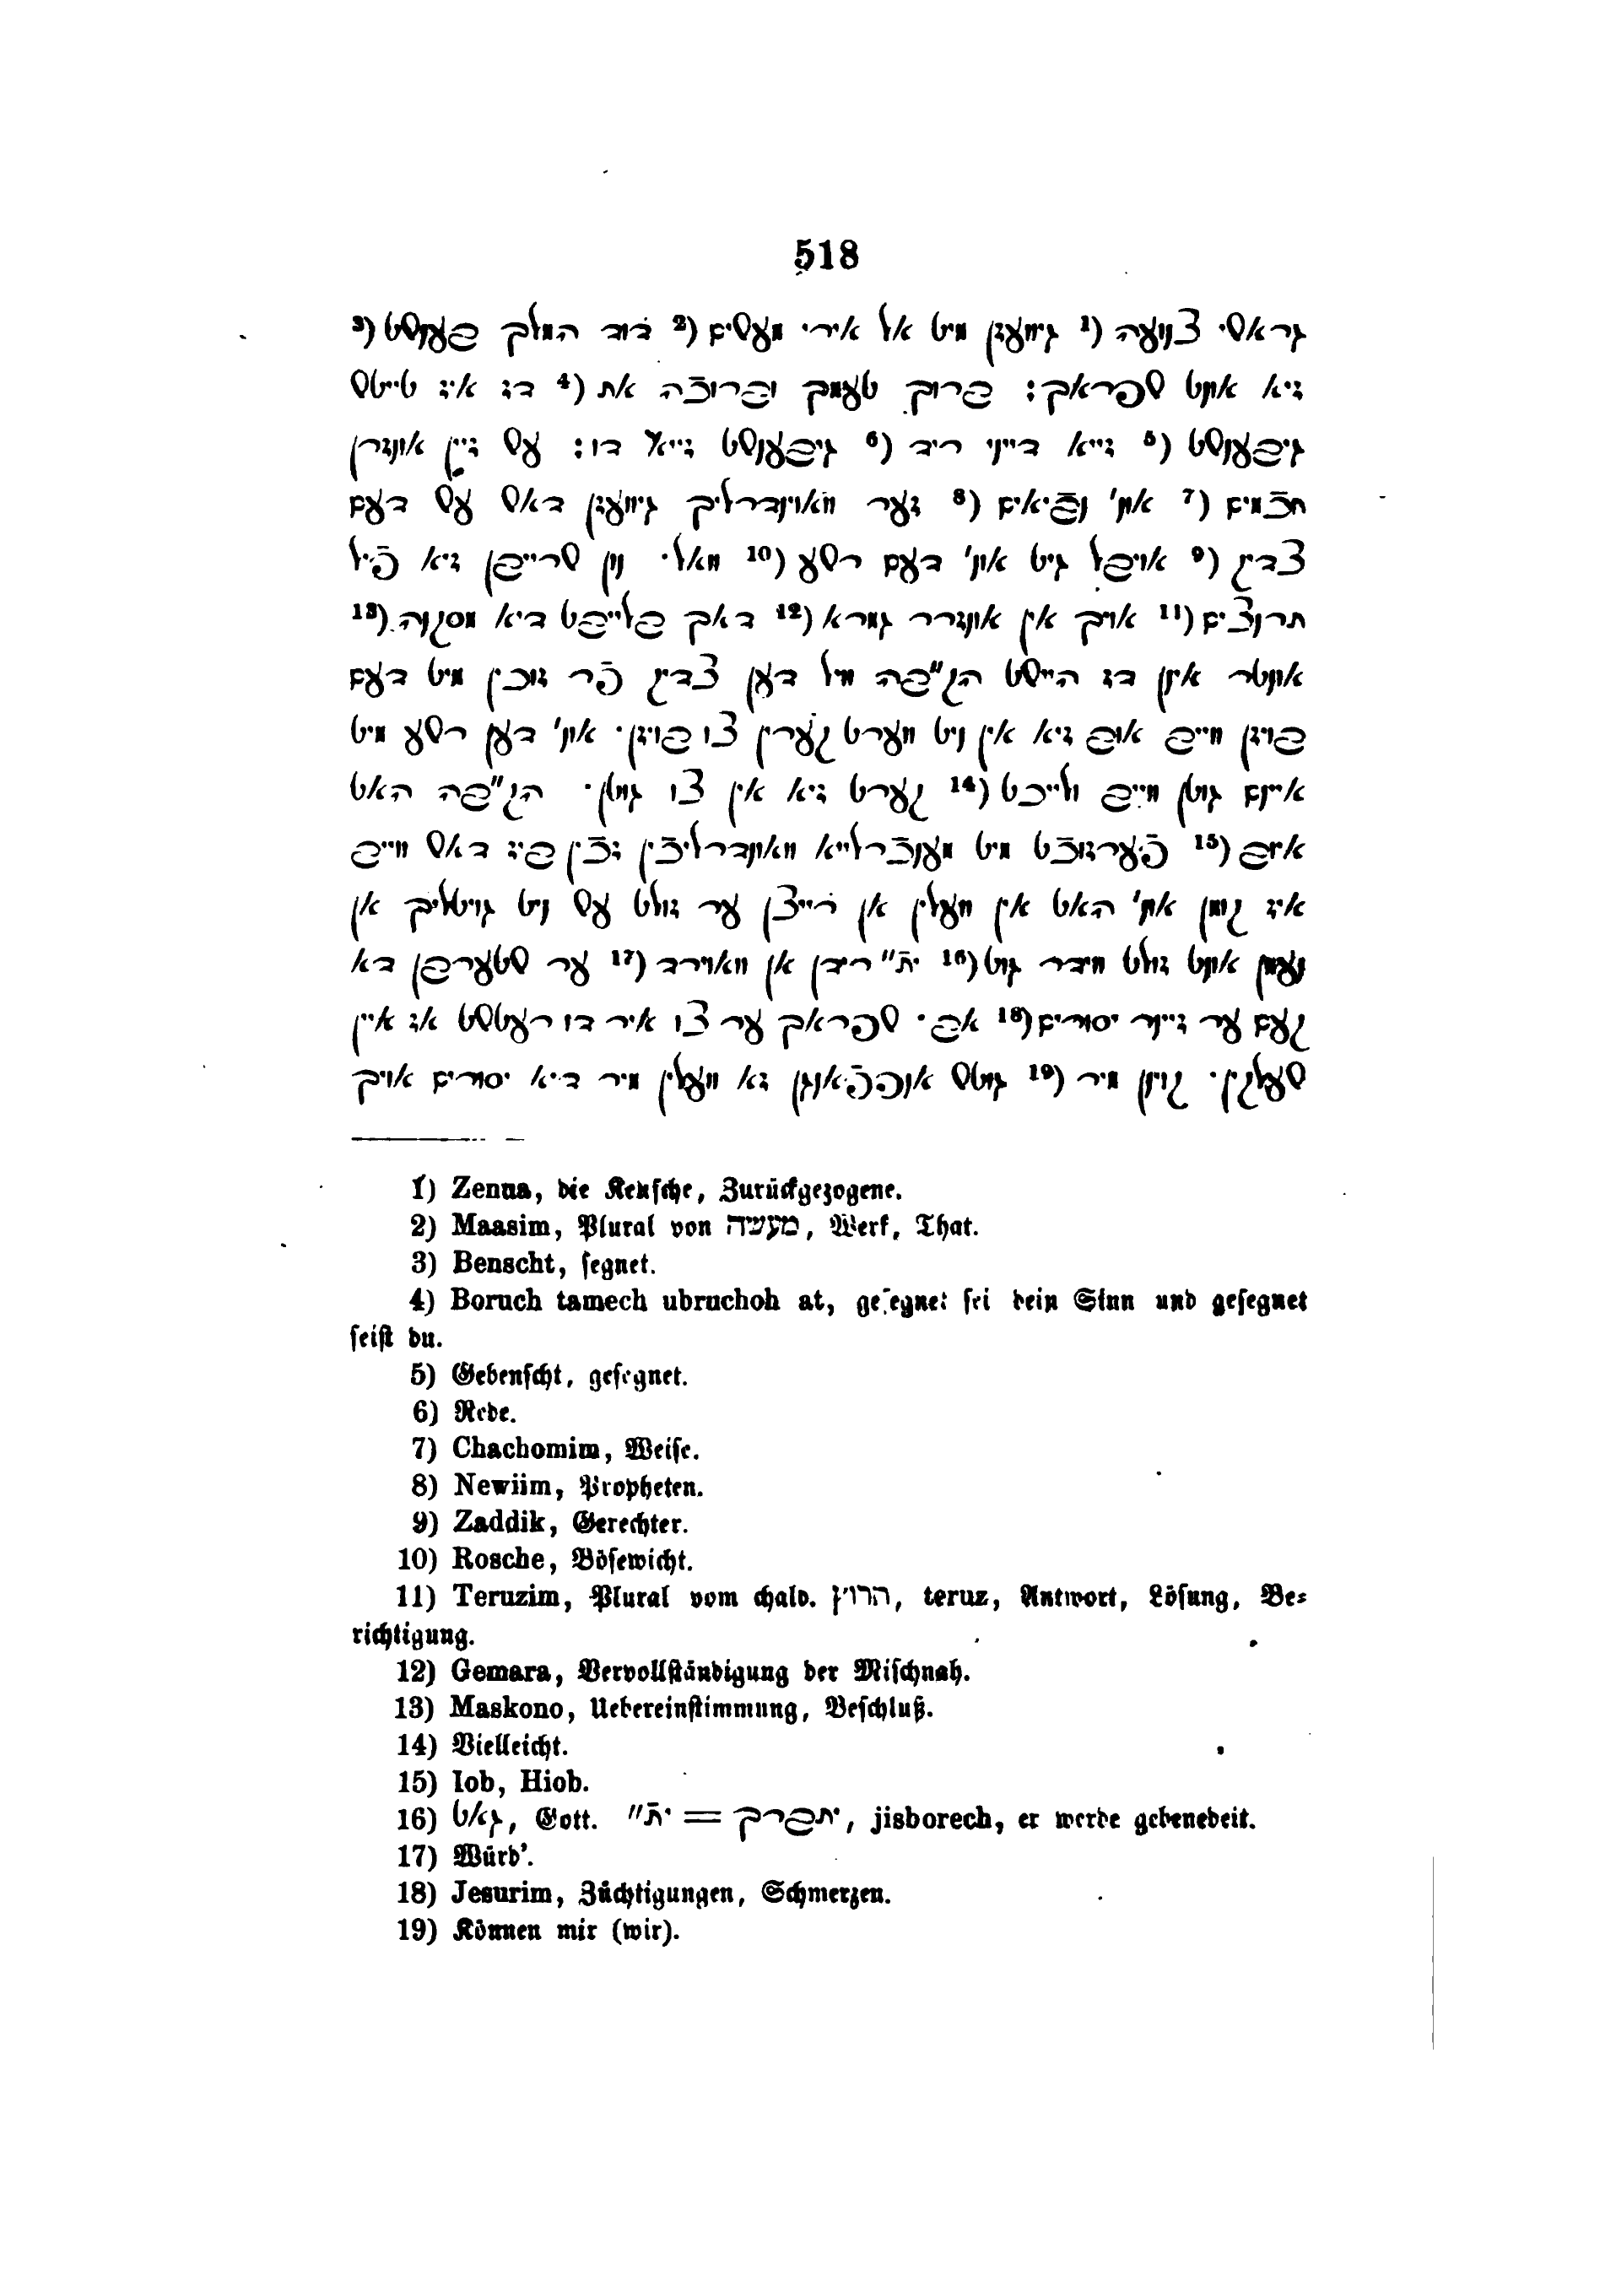 518
גראשי צנועה (1 גיוועזן מיט אל אירי מעשים (2 דוד המלך בענשט (3
זיא אונט שפראך: ברוך טעמך וברוכה את (4 דז איז טייטש
גיבענשט (5 זייא דייני ריד (6 גיבענשט זייא דו: עש זיין אונזרן
חכמים (7 אונ' נביאים (8 זער וואוינדרליך גיוועזן דאש עש דעם
צדיק (9 אויבל גיט אונ' דעם רשע (10 וואל. נון שרייבן זיא פיל
תרוצים (11 אויך אין אונזרר גמרא (12 דאך בלייבט דיא מסקנה (13
אונטר אינן דז היישט הק"בה וויל דען צדיק פר זוכין מיט דעם
בויזן ווייב אוב זיא אין ניט ווערט קערין צו בויזן. אונ' דען רשע מיט
איינם גוטן ווייב ולייכט (14 קערט זיא אין צו גוטן. הק"בה האט
איוב (15 פערזוכט מיט מענכרלייא וואונדרליכין זכין ביז דאש ווייב
איז קומן אונ' האט אין וועלין אן רייצן ער זולט עש ניט גויטליך אן
נעמן אונט זולט ווידר גוט(16 ית" רידן אן וואוירד (17 ער שטערבן דא
קעם ער זיינר יסורים(18 אב. שפראך ער צו איר דו רעטשט אז איין
שעלקין. קוינן מיר (19 גוטש אנפפאנגן זא וועלין מיר דיא יסורים אויך
1) Zenua, die Keusche, Zurückgezogene.
2) Maasim, Plural von מעשה, Werk, That.
3) Benscht, segnet.
4) Boruch tamech ubruchoh at, gesegnet sei dein Sinn und gesegnet
seist du.
5) Gebenscht, gesegnet.
6) Rede.
7) Chachomim, Weise.
8) Newiim, Propheten.
9) Zaddik, Gerechter.
10) Rosche, Bösewicht.
11) Teruzim, Plural vom chald. תרוץ, teruz, Antwort, Lösung, Be-
richtigung.
12) Gemara, Vervollständigung der Mischnah.
13) Maskono, Uebereinstimmung, Beschluß.
14) Vielleicht.
15) Iob, Hiob.
16) גאט, Gott. ית" = יתברך, jisborech, er werde gebenedeit.
17) Würd'.
18) Jesurim, Züchtigungen, Schmerzen.
19) Können mir (wir).